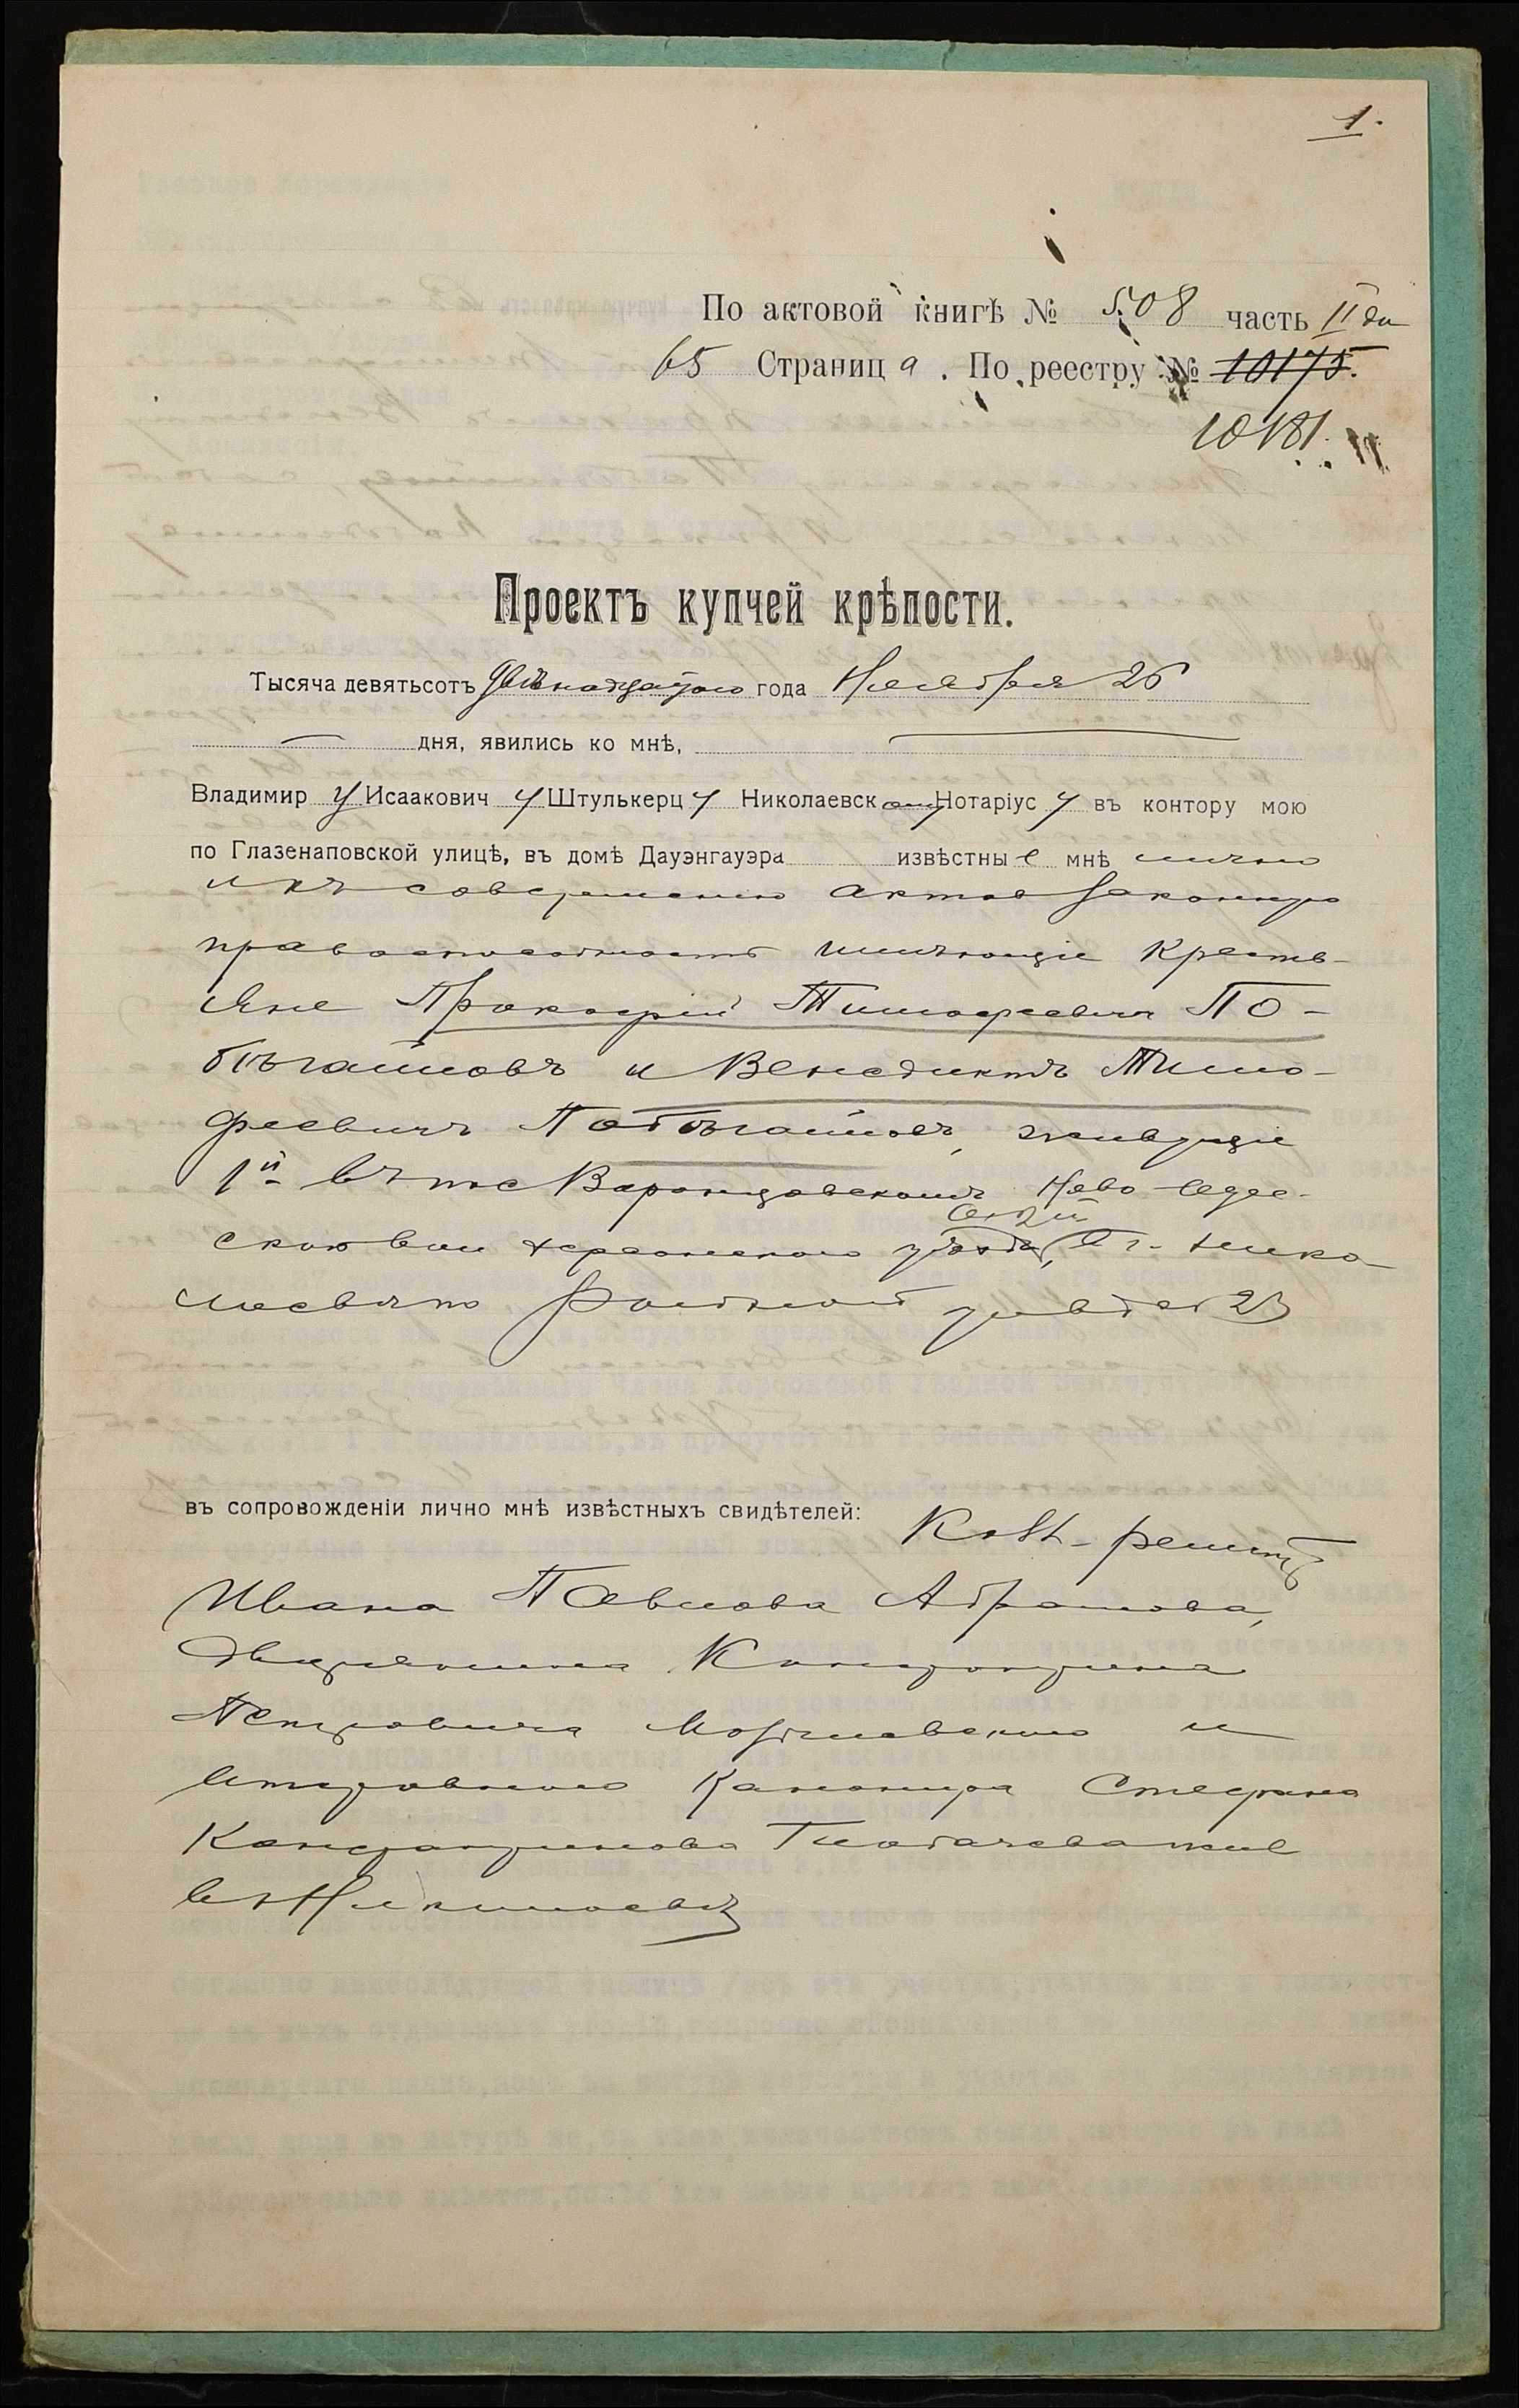 1.
По актовой книгѣ № 508 часть II
65 Страниц а. По реестру № 10175.
10181.
Проектъ купчей крѣпости.
Тысяча девятьсотъ двѣнадцатого года Ноября 26
дня, явились ко мнѣ,
Владимир у Исаакович у Штулькерц у Николаевск ому Нотаріус у въ контору мою
по Глазенаповской улицѣ, въ домѣ Дауэнгауэра извѣстны е мнѣ лично
и къ совершенію актов законную
правоспособность имѣющіе Кресть-
яне Прокофій Тимофеевич По-
бѣгайловъ и Венедиктъ Тимо-
феевичъ Побѣгайловъ, живущіе
1й въ пос Воронцовскомъ Ново-
ской вол Херсонского уѣзда, г. Нико
лаевѣ по улицѣ 23
въ сопровожденіи лично мнѣ извѣстныхъ свидѣтелей:
Ивана Павлова Абрамова,
Дворянина
Петровича и
Канонира Стефана
жив
въ Николаевѣ